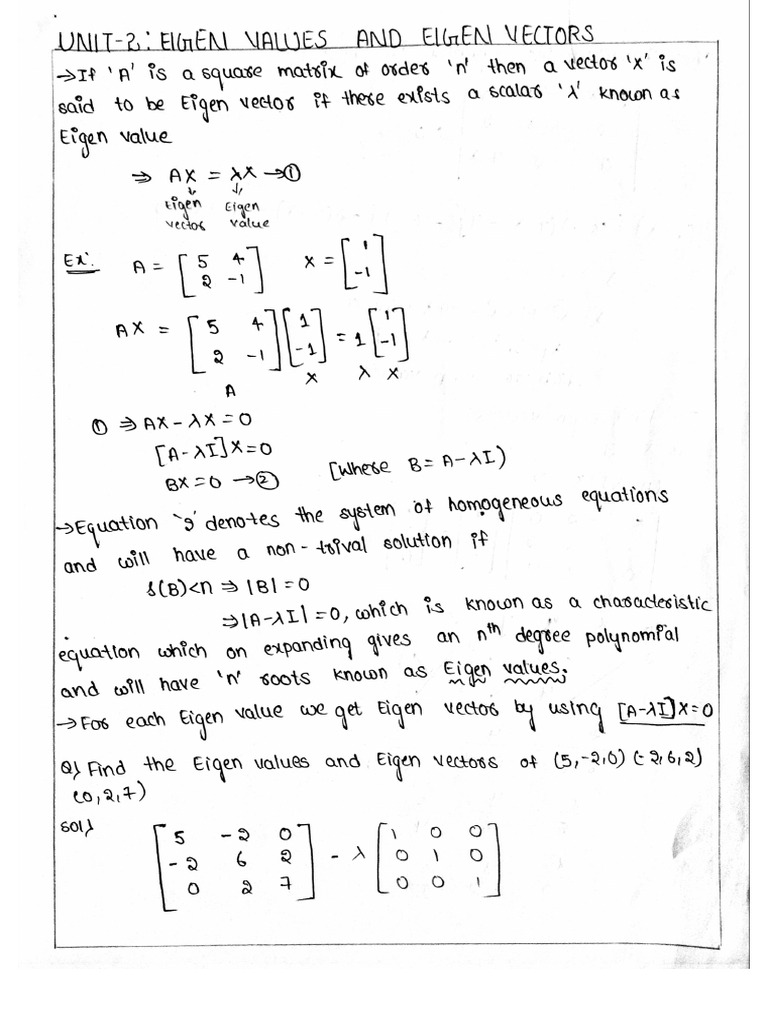 UNIT-2: EIGEN VALUES AND EIGEN VECTORS
→If 'A' is a square matrix of order 'n' then a vector 'x' is
said to be Eigen vector if there exists a scalar 'λ' known as
Eigen value
⇒ AX = λX →①
↓ ↓
Eigen Eigen
vector value
Ex: A = [5 4; 2 -1] X = [1; -1]
AX = [5 4; 2 -1] [1; -1] = 1 [1; -1]
A X λ X
① ⇒ AX-λX=0
[A-λI]X=0
BX=0 →② [where B= A-λI)
→Equation '2' denotes the system of homogeneous equations
and will have a non-trival solution if
ſ(B)<n ⇒ |B|=0
⇒|A-λI|=0, which is known as a characteristic
equation which on expanding gives an nth degree polynomial
and will have 'n' roots known as Eigen values.
→For each Eigen value we get Eigen vector by using [A-λI]X=0
Q) Find the Eigen values and Eigen vectors of (5,-2,0) (-2,6,2)
(0,2,7)
Sol)
[5 -2 0; -2 6 2; 0 2 7] - λ [1 0 0; 0 1 0; 0 0 1]